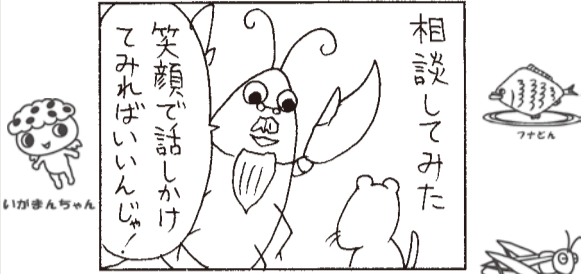 相談してみた
笑顔で話しかけ
てみればいいんじゃ!
いがまんちゃん
フナどん